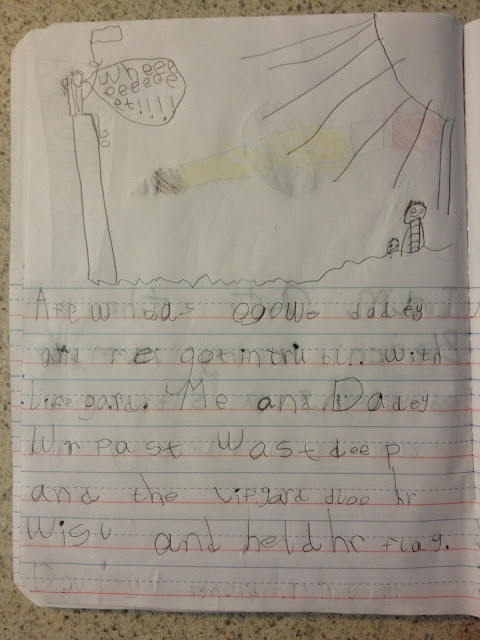 Wheee
eeeeee
et!!!!
A fe w das ogowe dadey
and me got intrubl.. with
Life gard. Me and Dadey
Wr past Wast deep
and the lifgard bloo hr
Wisl and held hr flag.